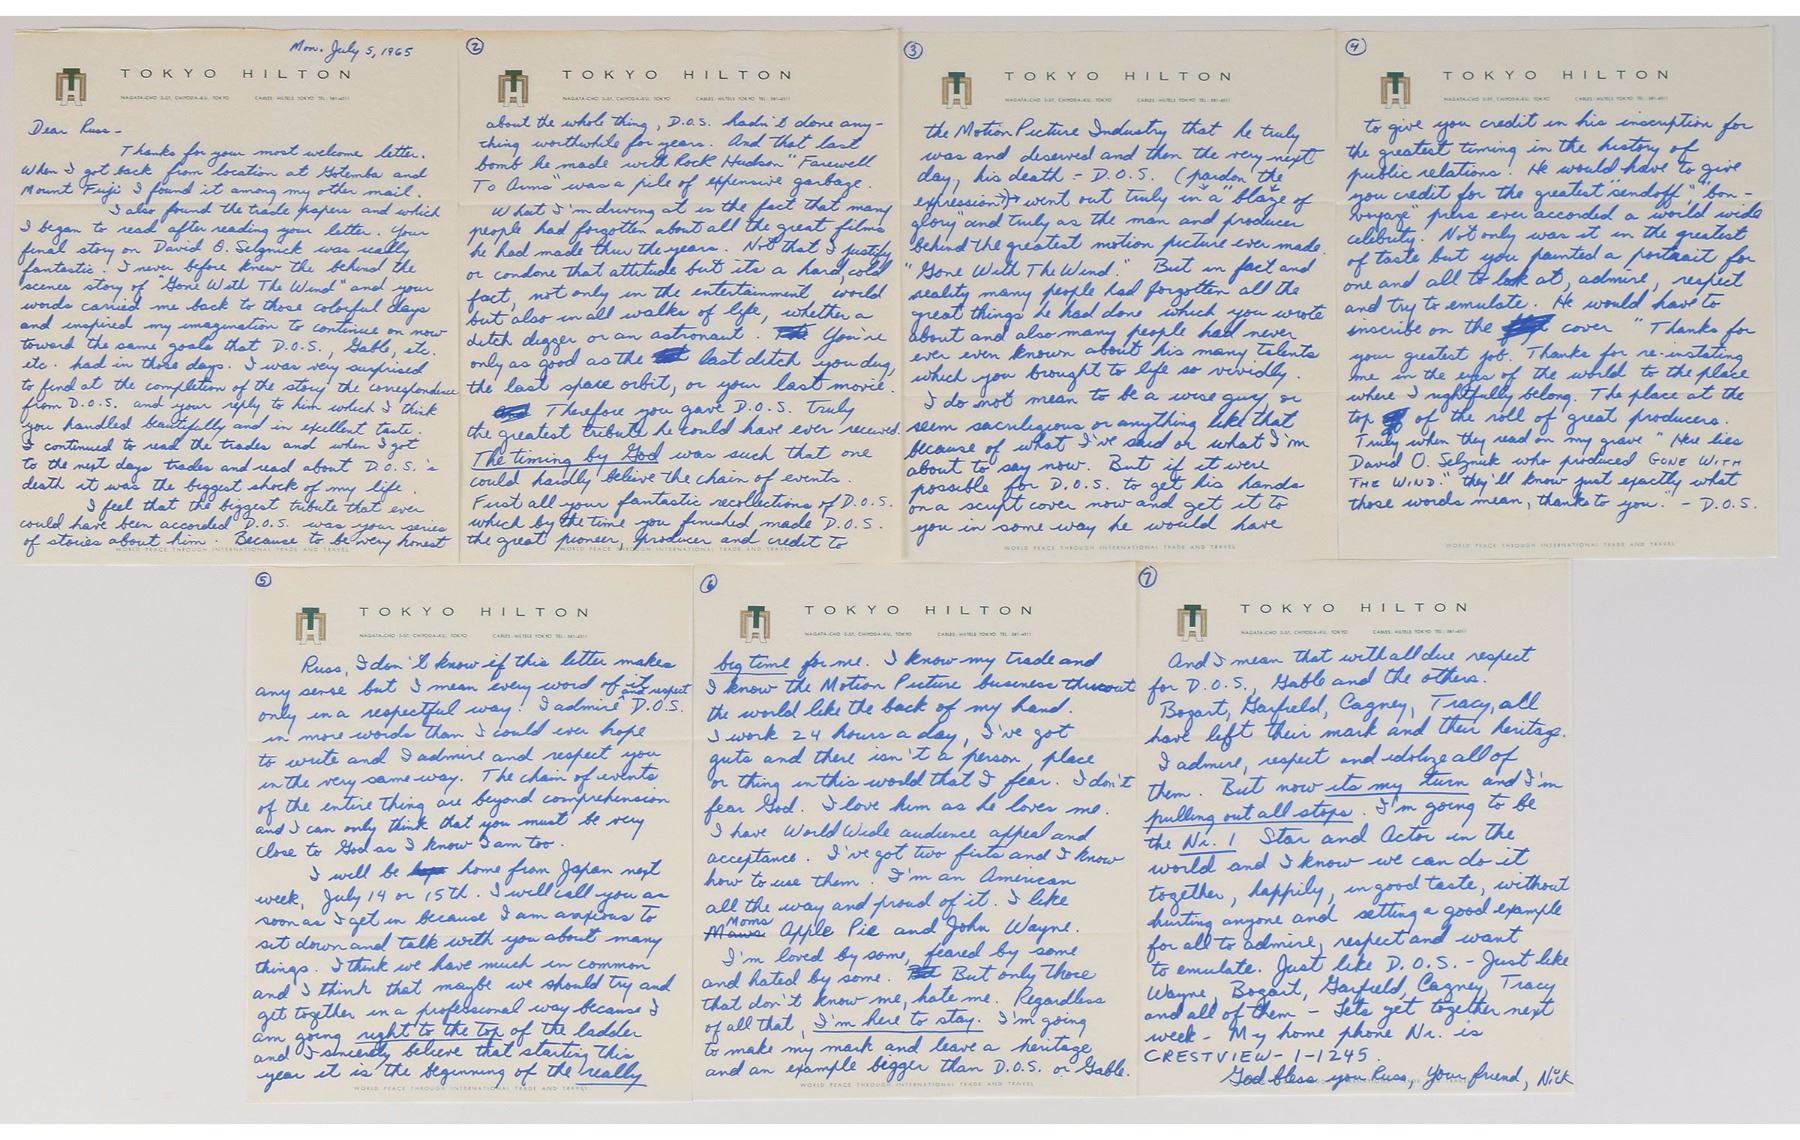 Mon. July 5, 1965
TOKYO HILTON
NAGATA-CHO 2-07, CHIYODA-KU, TOKYO CABLES: HILTELS TOKYO TEL: 581-4511
Dear Russ -
Thanks for your most welcome letter.
When I got back from location at Gotemba and
Mount Fuji I found it among my other mail.
I also found the trade papers and which
I began to read after reading your letter. Your
final story on David O. Selznick was really
fantastic. I never before knew the behind the
scenes story of "Gone With The Wind" and your
words carried me back to those colorful days
and inspired my imagination to continue on now
toward the same goals that D.O.S., Gable, etc.
etc. had in those days. I was very surprised
to find at the completion of the story the correspondence
from D.O.S. and your reply to him which I think
you handled beautifully and in excellent taste.
I continued to read the trades and when I got
to the next days trades and read about D.O.S.'s
death it was the biggest shock of my life.
I feel that the biggest tribute that ever
could have been accorded D.O.S. was your series
of stories about him. Because to be very honest
WORLD PEACE THROUGH INTERNATIONAL TRADE AND TRAVEL
2
TOKYO HILTON
NAGATA-CHO 2-07, CHIYODA-KU, TOKYO CABLES: HILTELS TOKYO TEL: 581-4511
about the whole thing, D.O.S. hadn't done any-
thing worthwhile for years. And that last
bomb he made with Rock Hudson "Farewell
To Arms" was a pile of expensive garbage.
What I'm driving at is the fact that many
people had forgotten about all the great films
he had made thru the years. Not that I justify
or condone that attitude but its a hard, cold
fact, not only in the entertainment world
but also in all walks of life, whether a
ditch digger or an astronaut. You're
only as good as the last ditch you dug,
the last space orbit, or your last movie.
Therefore you gave D.O.S. truly
the greatest tribute he could have ever received.
The timing by God was such that one
could hardly believe the chain of events.
First all your fantastic recollections of D.O.S.
which by the time you finished made D.O.S.
the great pioneer, producer and credit to
WORLD PEACE THROUGH INTERNATIONAL TRADE AND TRAVEL
3
TOKYO HILTON
NAGATA-CHO 2-07, CHIYODA-KU, TOKYO CABLES: HILTELS TOKYO TEL: 581-4511
the Motion Picture Industry that he truly
was and deserved and then the very next
day, his death - D.O.S. (pardon the
expression) went out truly in a "blaze of
glory" and truly as the man and producer
behind the greatest motion picture ever made.
"Gone With The Wind." But in fact and
reality many people had forgotten all the
great things he had done which you wrote
about and also many people had never
ever even known about his many talents
which you brought to life so vividly.
I do not mean to be a wise guy, or
seem sacrilegious or anything like that
because of what I've said or what I'm
about to say now. But if it were
possible for D.O.S. to get his hands
on a script cover now and get it to
you in some way he would have
WORLD PEACE THROUGH INTERNATIONAL TRADE AND TRAVEL
4
TOKYO HILTON
NAGATA-CHO 2-07, CHIYODA-KU, TOKYO CABLES: HILTELS TOKYO TEL: 581-4511
to give you credit in his inscription for
the greatest timing in the history of
public relations. He would have to give
you credit for the greatest "sendoff," "bon-
voyage" press ever accorded a world wide
celebrity. Not only was it in the greatest
of taste but you painted a portrait for
one and all to look at, admire, respect
and try to emulate. He would have to
inscribe on the cover "Thanks for
your greatest job. Thanks for re-instating
me in the eyes of the world to the place
where I rightfully belong. The place at the
top of the roll of great producers.
Truly when they read on my grave "Here lies
David O. Selznick who produced GONE WITH
THE WIND." they'll know just exactly what
those words mean, thanks to you." - D.O.S.
WORLD PEACE THROUGH INTERNATIONAL TRADE AND TRAVEL
5
TOKYO HILTON
NAGATA-CHO 2-07, CHIYODA-KU, TOKYO CABLES: HILTELS TOKYO TEL: 581-4511
Russ, I don't know if this letter makes
any sense but I mean every word of it
only in a respectful way. I admire and respect D.O.S.
in more words than I could ever hope
to write and I admire and respect you
in the very same way. The chain of events
of the entire thing are beyond comprehension
and I can only think that you must be very
close to God as I know I am too.
I will be home from Japan next
week, July 14 or 15th. I will call you as
soon as I get in because I am anxious to
sit down and talk with you about many
things. I think we have much in common
and I think that maybe we should try and
get together in a professional way because I
am going right to the top of the ladder
and I sincerely believe that starting this
year it is the beginning of the really
WORLD PEACE THROUGH INTERNATIONAL TRADE AND TRAVEL
6
TOKYO HILTON
NAGATA-CHO 2-07, CHIYODA-KU, TOKYO CABLES: HILTELS TOKYO TEL: 581-4511
big time for me. I know my trade and
I know the Motion Picture business thruout
the world like the back of my hand.
I work 24 hours a day, I've got
guts and there isn't a person, place
or thing in this world that I fear. I don't
fear God. I love him as he loves me.
I have World Wide audience appeal and
acceptance. I've got two fists and I know
how to use them. I'm an American
all the way and proud of it. I like
Moms Apple Pie and John Wayne.
I'm loved by some, feared by some
and hated by some. But only those
that don't know me, hate me. Regardless
of all that, I'm here to stay. I'm going
to make my mark and leave a heritage
and an example bigger than D.O.S. or Gable.
WORLD PEACE THROUGH INTERNATIONAL TRADE AND TRAVEL
7
TOKYO HILTON
NAGATA-CHO 2-07, CHIYODA-KU, TOKYO CABLES: HILTELS TOKYO TEL: 581-4511
And I mean that with all due respect
for D.O.S., Gable and the others.
Bogart, Garfield, Cagney, Tracy, all
have left their mark and their heritage.
I admire, respect and idolize all of
them. But now its my turn and I'm
pulling out all stops. I'm going to be
the Nr. 1 Star and Actor in the
world and I know we can do it
together, happily, in good taste, without
hurting anyone and setting a good example
for all to admire, respect and want
to emulate. Just like D.O.S. - Just like
Wayne, Bogart, Garfield, Cagney, Tracy
and all of them - Lets get together next
week - My home phone Nr. is
CRESTVIEW - 1-1245.
God bless you Russ, Your friend, Nick